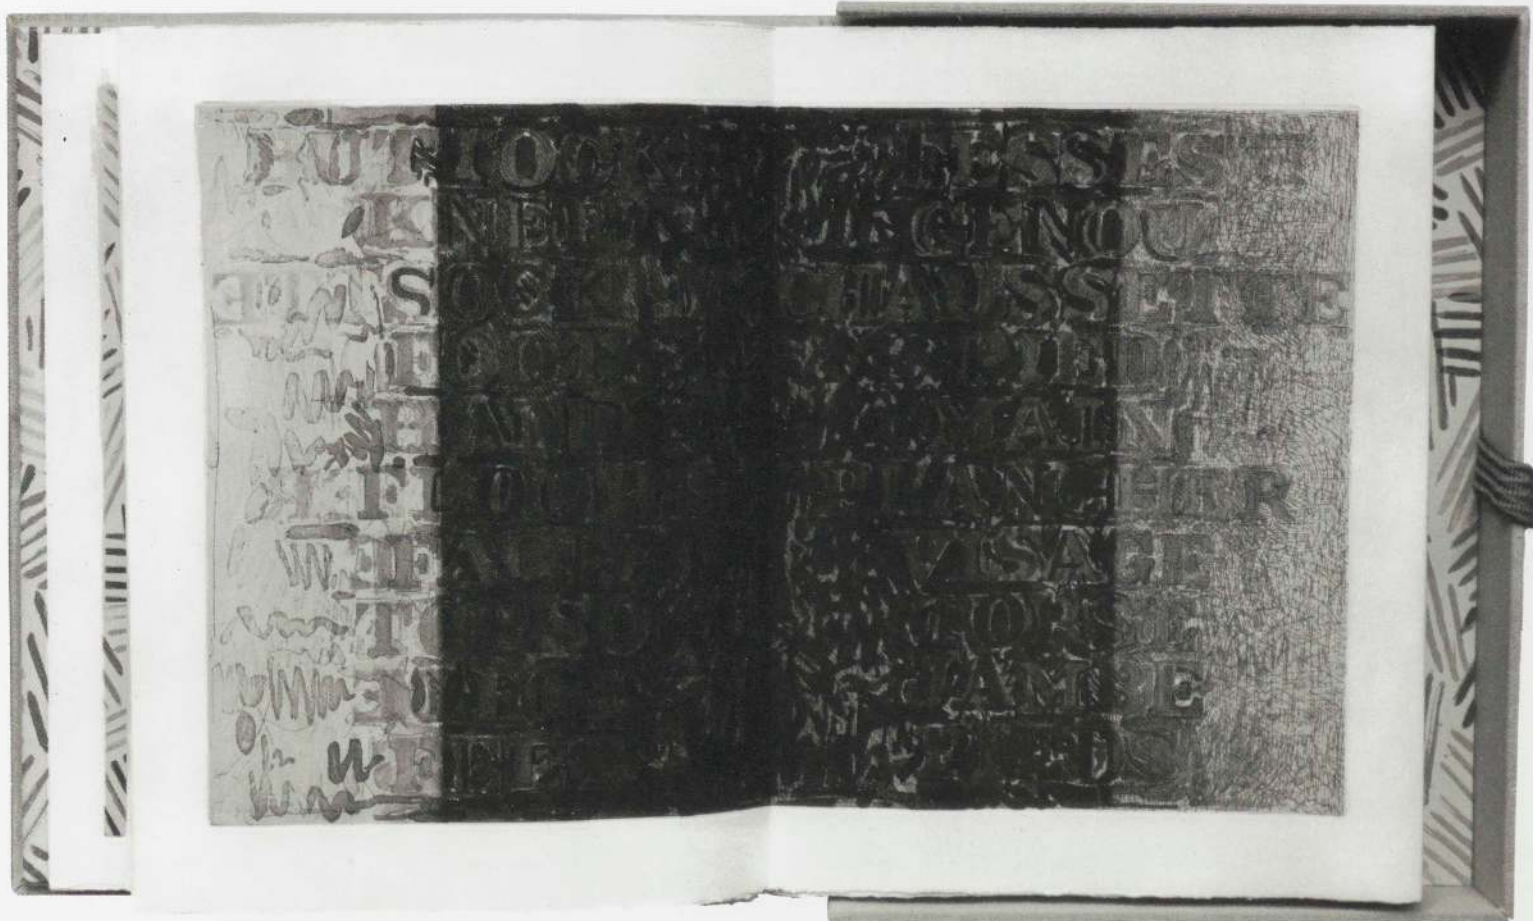 BUTTOCKS FESSES
KNEE GENOU
SOCK CHAUSSETTE
FOOT PIED
HAND MAIN
FLOOR PLANCHER
FACE VISAGE
TORSO TORSE
JAMBE
FEET PIEDS